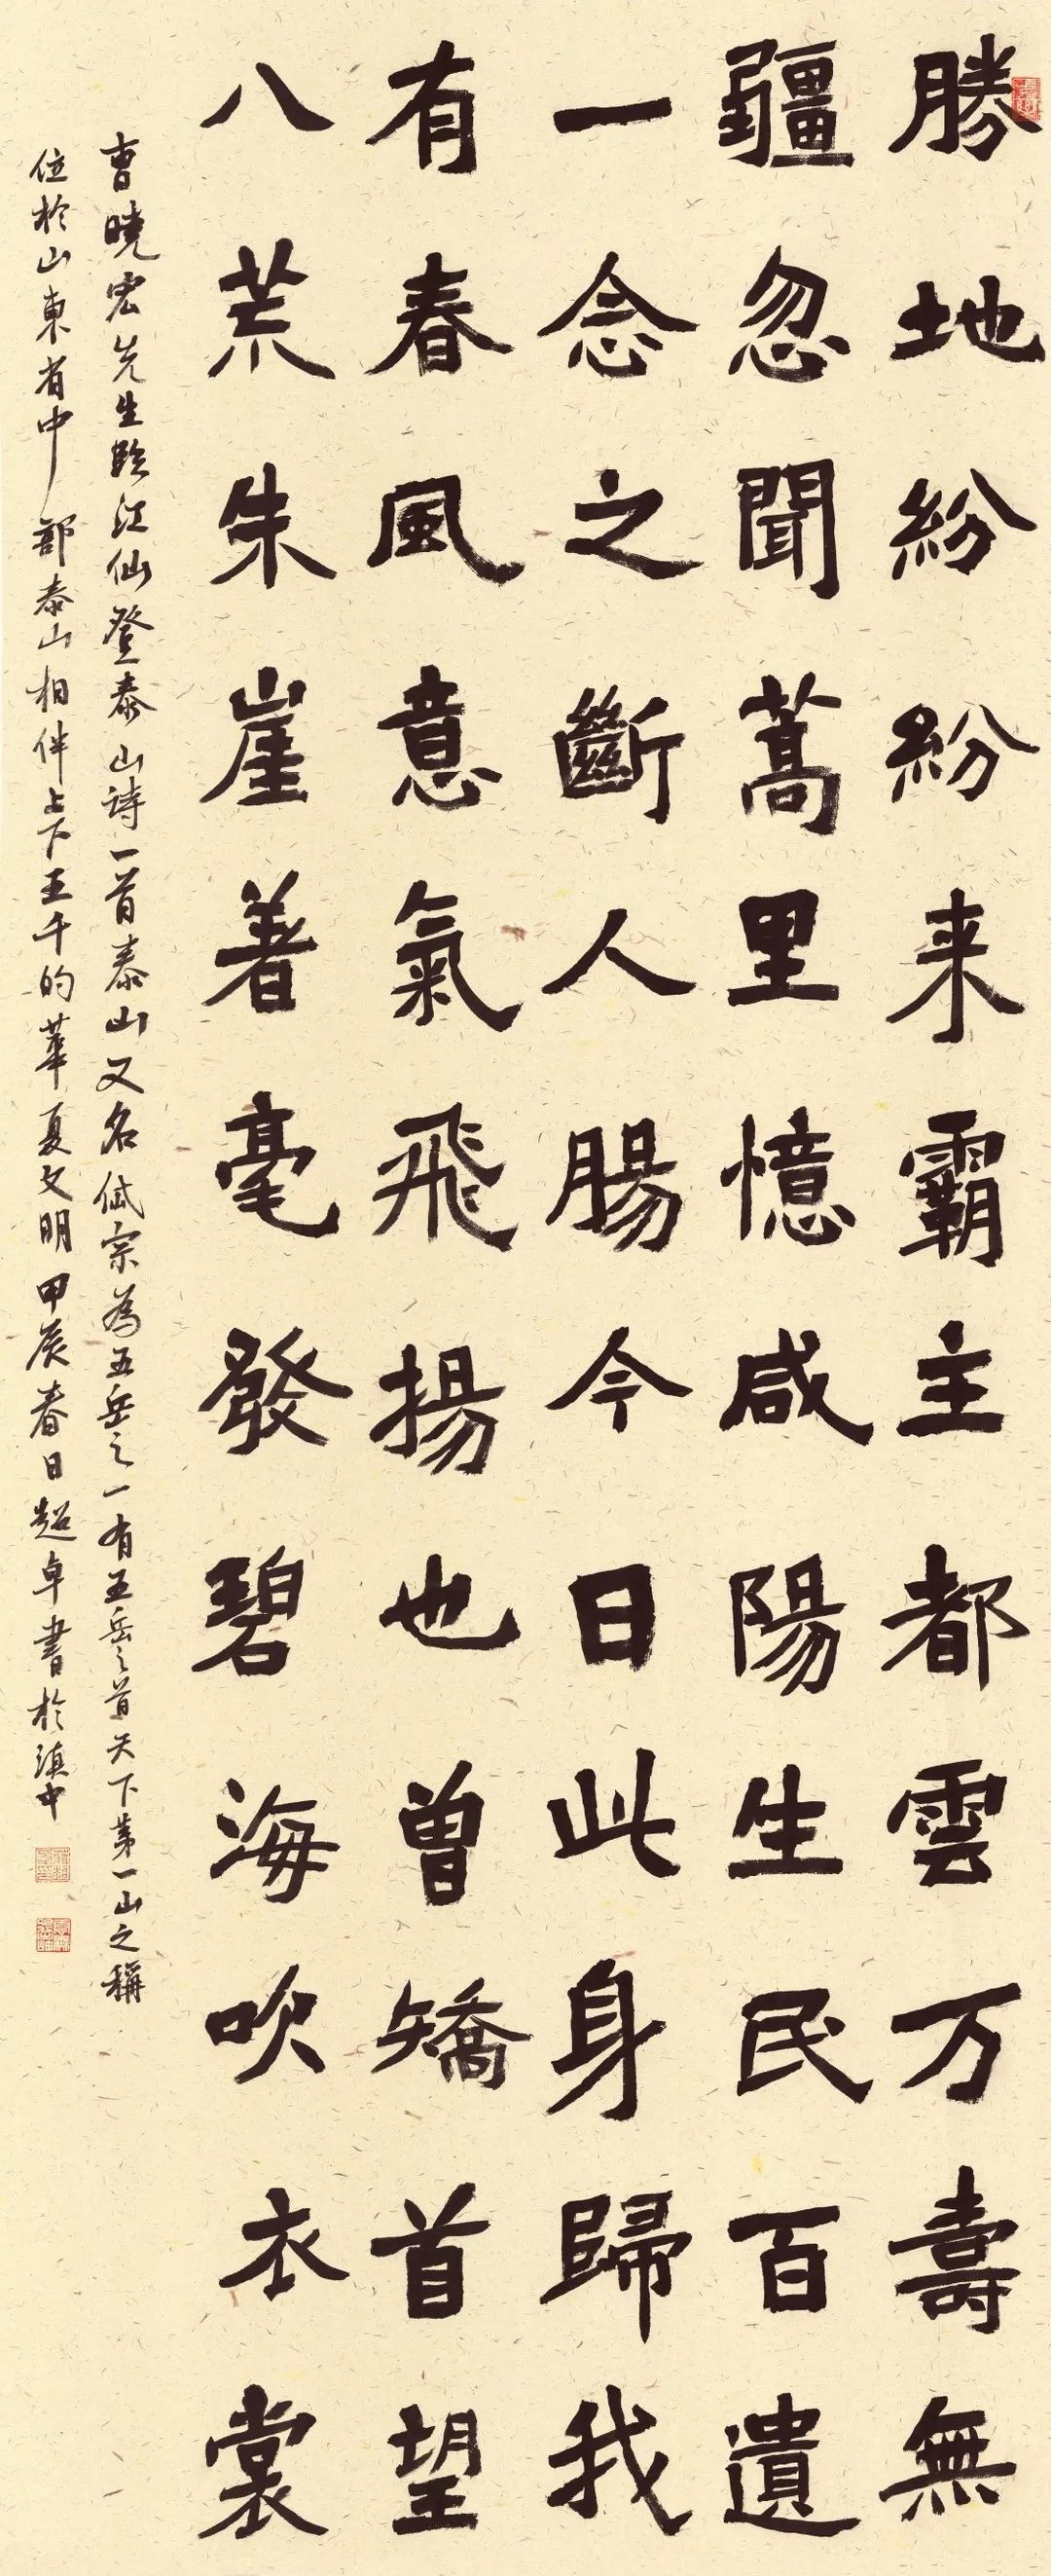 勝地紛紛来霸主都雲万壽無
疆忽聞蒿里憶咸陽生民百遺
一念之斷人腸今日此身歸我
有春風意氣飛揚也曾矯首望
八荒朱崖著毫發碧海吹衣裳
曹曉宏先生臨江仙登泰山诗一首泰山又名岱宗為五岳之一有五岳之首天下第一山之稱
位於山東省中部泰山相伴上下五千的華夏文明甲辰春日超卓書於滇中